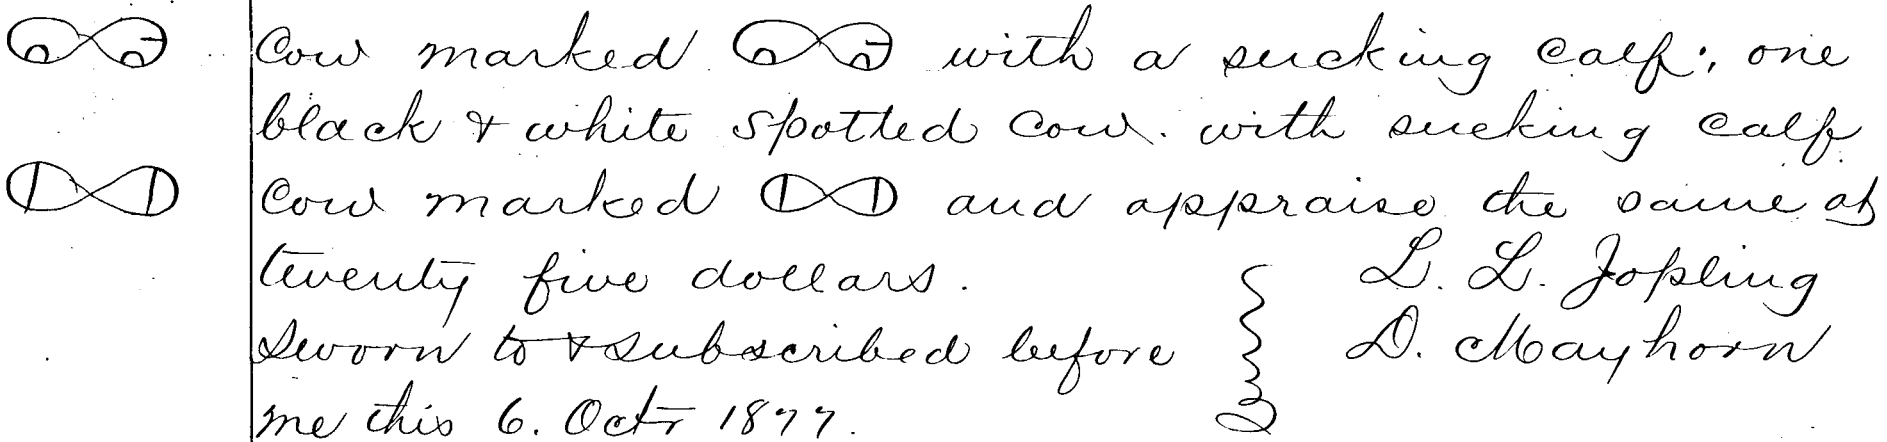 Cow marked with a sucking calf; one
black & white spotted cow. with sucking calf
Cow marked and appraise the same at
twenty five dollars.
L. L. Jopling
Sworn to & subscribed before
D. Mayhorn
me this 6. Octr 1877.